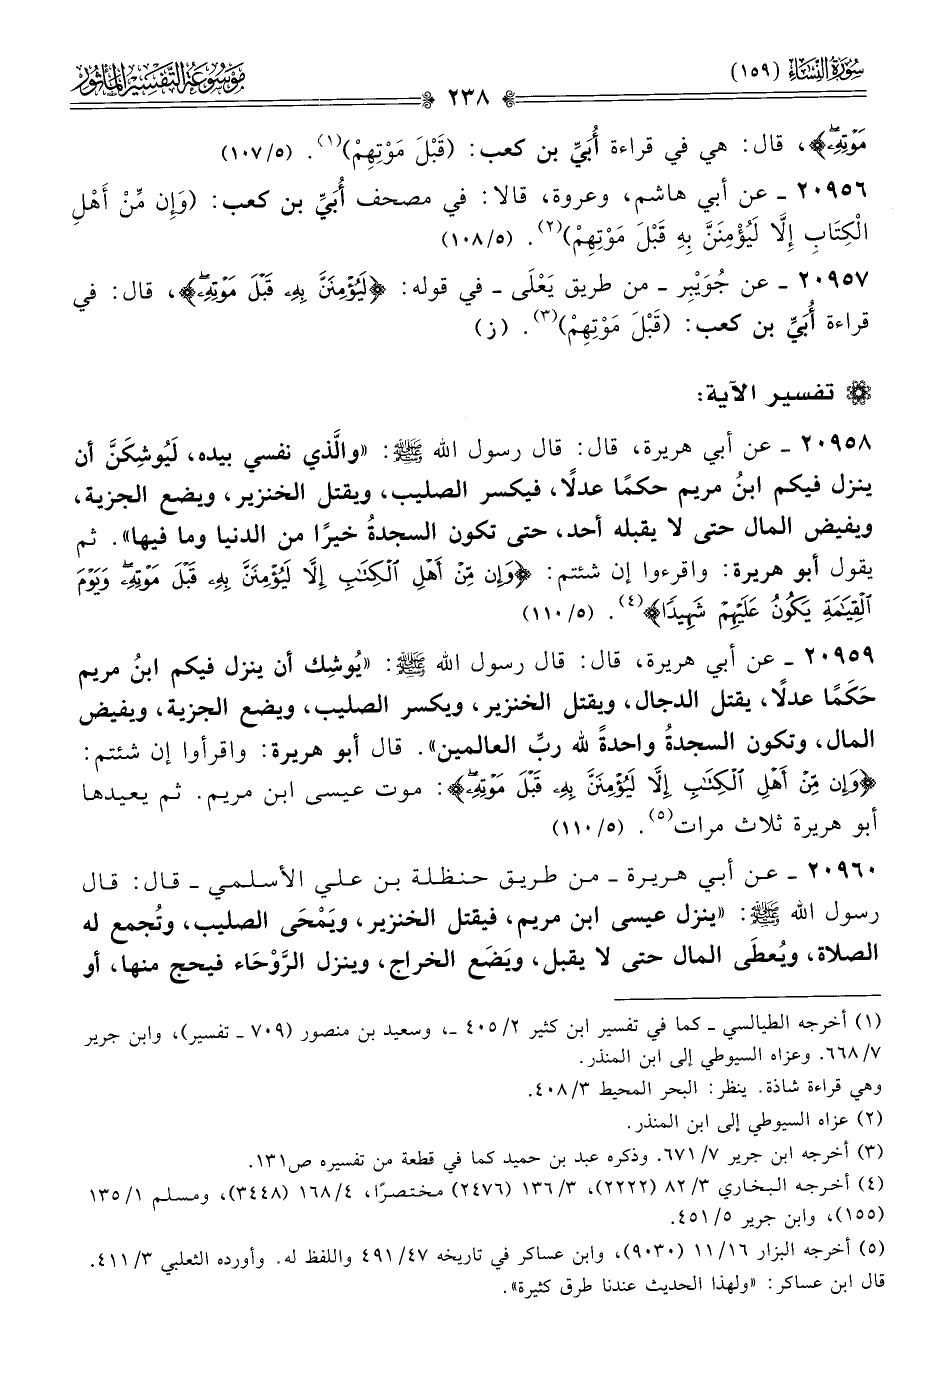 سُورَةُ النِّسَاءِ (١٥٩)
٢٣٨
مَوْسُوعَةُ التَّفْسِيرِ المَأْثُورِ
مَوْتِهِۦۖ﴾، قال: هي في قراءة أُبَيِّ بن كعب: (قَبْلَ مَوْتِهِمْ)(١). (١٠٧/٥)
٢٠٩٥٦ ـ عن أبي هاشم، وعروة، قالا: في مصحف أُبَيِّ بن كعب: (وَإِن مِّنْ أَهْلِ
الْكِتَابِ إِلَّا لَيُؤْمِنَنَّ بِهِ قَبْلَ مَوْتِهِمْ)(٢). (١٠٨/٥)
٢٠٩٥٧ ـ عن جُوَيْبِر ـ من طريق يَعْلَى ـ في قوله: ﴿لَيُؤْمِنَنَّ بِهِۦ قَبْلَ مَوْتِهِۦۖ﴾، قال: في
قراءة أُبَيِّ بن كعب: (قَبْلَ مَوْتِهِمْ)(٣). (ز)
تفسير الآية:
٢٠٩٥٨ ـ عن أبي هريرة، قال: قال رسول الله ﷺ: «والَّذي نفسي بيده، لَيُوشِكَنَّ أن
ينزل فيكم ابنُ مريم حكمًا عدلًا، فيكسر الصليب، ويقتل الخنزير، ويضع الجزية،
ويفيض المال حتى لا يقبله أحد، حتى تكون السجدةُ خيرًا من الدنيا وما فيها». ثم
يقول أبو هريرة: واقرءوا إن شئتم: ﴿وَإِن مِّنْ أَهْلِ ٱلْكِتَٰبِ إِلَّا لَيُؤْمِنَنَّ بِهِۦ قَبْلَ مَوْتِهِۦۖ وَيَوْمَ
ٱلْقِيَٰمَةِ يَكُونُ عَلَيْهِمْ شَهِيدًا﴾(٤). (١١٠/٥)
٢٠٩٥٩ ـ عن أبي هريرة، قال: قال رسول الله ﷺ: «يُوشِك أن ينزل فيكم ابنُ مريم
حَكَمًا عدلًا، يقتل الدجال، ويقتل الخنزير، ويكسر الصليب، ويضع الجزية، ويفيض
المال، وتكون السجدةُ واحدةً لله ربِّ العالمين». قال أبو هريرة: واقرأوا إن شئتم:
﴿وَإِن مِّنْ أَهْلِ ٱلْكِتَٰبِ إِلَّا لَيُؤْمِنَنَّ بِهِۦ قَبْلَ مَوْتِهِۦۖ﴾: موت عيسى ابن مريم. ثم يعيدها
أبو هريرة ثلاث مرات(٥). (١١٠/٥)
٢٠٩٦٠ ـ عن أبي هريرة ـ من طريق حنظلة بن علي الأسلمي ـ قال: قال
رسول الله ﷺ: «ينزل عيسى ابن مريم، فيقتل الخنزير، ويَمْحَى الصليب، وتُجمع له
الصلاة، ويُعطَى المال حتى لا يقبل، ويَضَع الخراج، وينزل الرَّوْحَاء فيحج منها، أو
(١) أخرجه الطيالسي ـ كما في تفسير ابن كثير ٤٠٥/٢ ـ، وسعيد بن منصور (٧٠٩ ـ تفسير)، وابن جرير
٦٦٨/٧. وعزاه السيوطي إلى ابن المنذر.
وهي قراءة شاذة. ينظر: البحر المحيط ٤٠٨/٣.
(٢) عزاه السيوطي إلى ابن المنذر.
(٣) أخرجه ابن جرير ٦٧١/٧. وذكره عبد بن حميد كما في قطعة من تفسيره ص١٣١.
(٤) أخرجه البخاري ٨٢/٣ (٢٢٢٢)، ١٣٦/٣ (٢٤٧٦) مختصرًا، ١٦٨/٤ (٣٤٤٨)، ومسلم ١٣٥/١
(١٥٥)، وابن جرير ٤٥١/٥.
(٥) أخرجه البزار ١١/١٦ (٩٠٣٠)، وابن عساكر في تاريخه ٤٩١/٤٧ واللفظ له. وأورده الثعلبي ٤١١/٣.
قال ابن عساكر: «ولهذا الحديث عندنا طرق كثيرة».